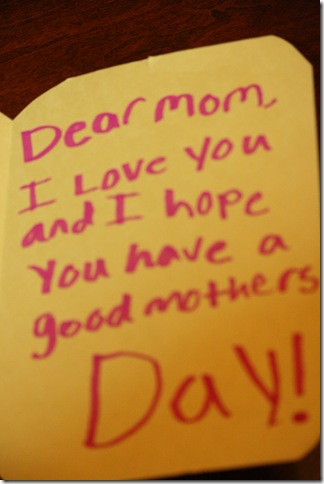 Dear mom,
I Love you
and I hope
you have a
good mothers
Day!